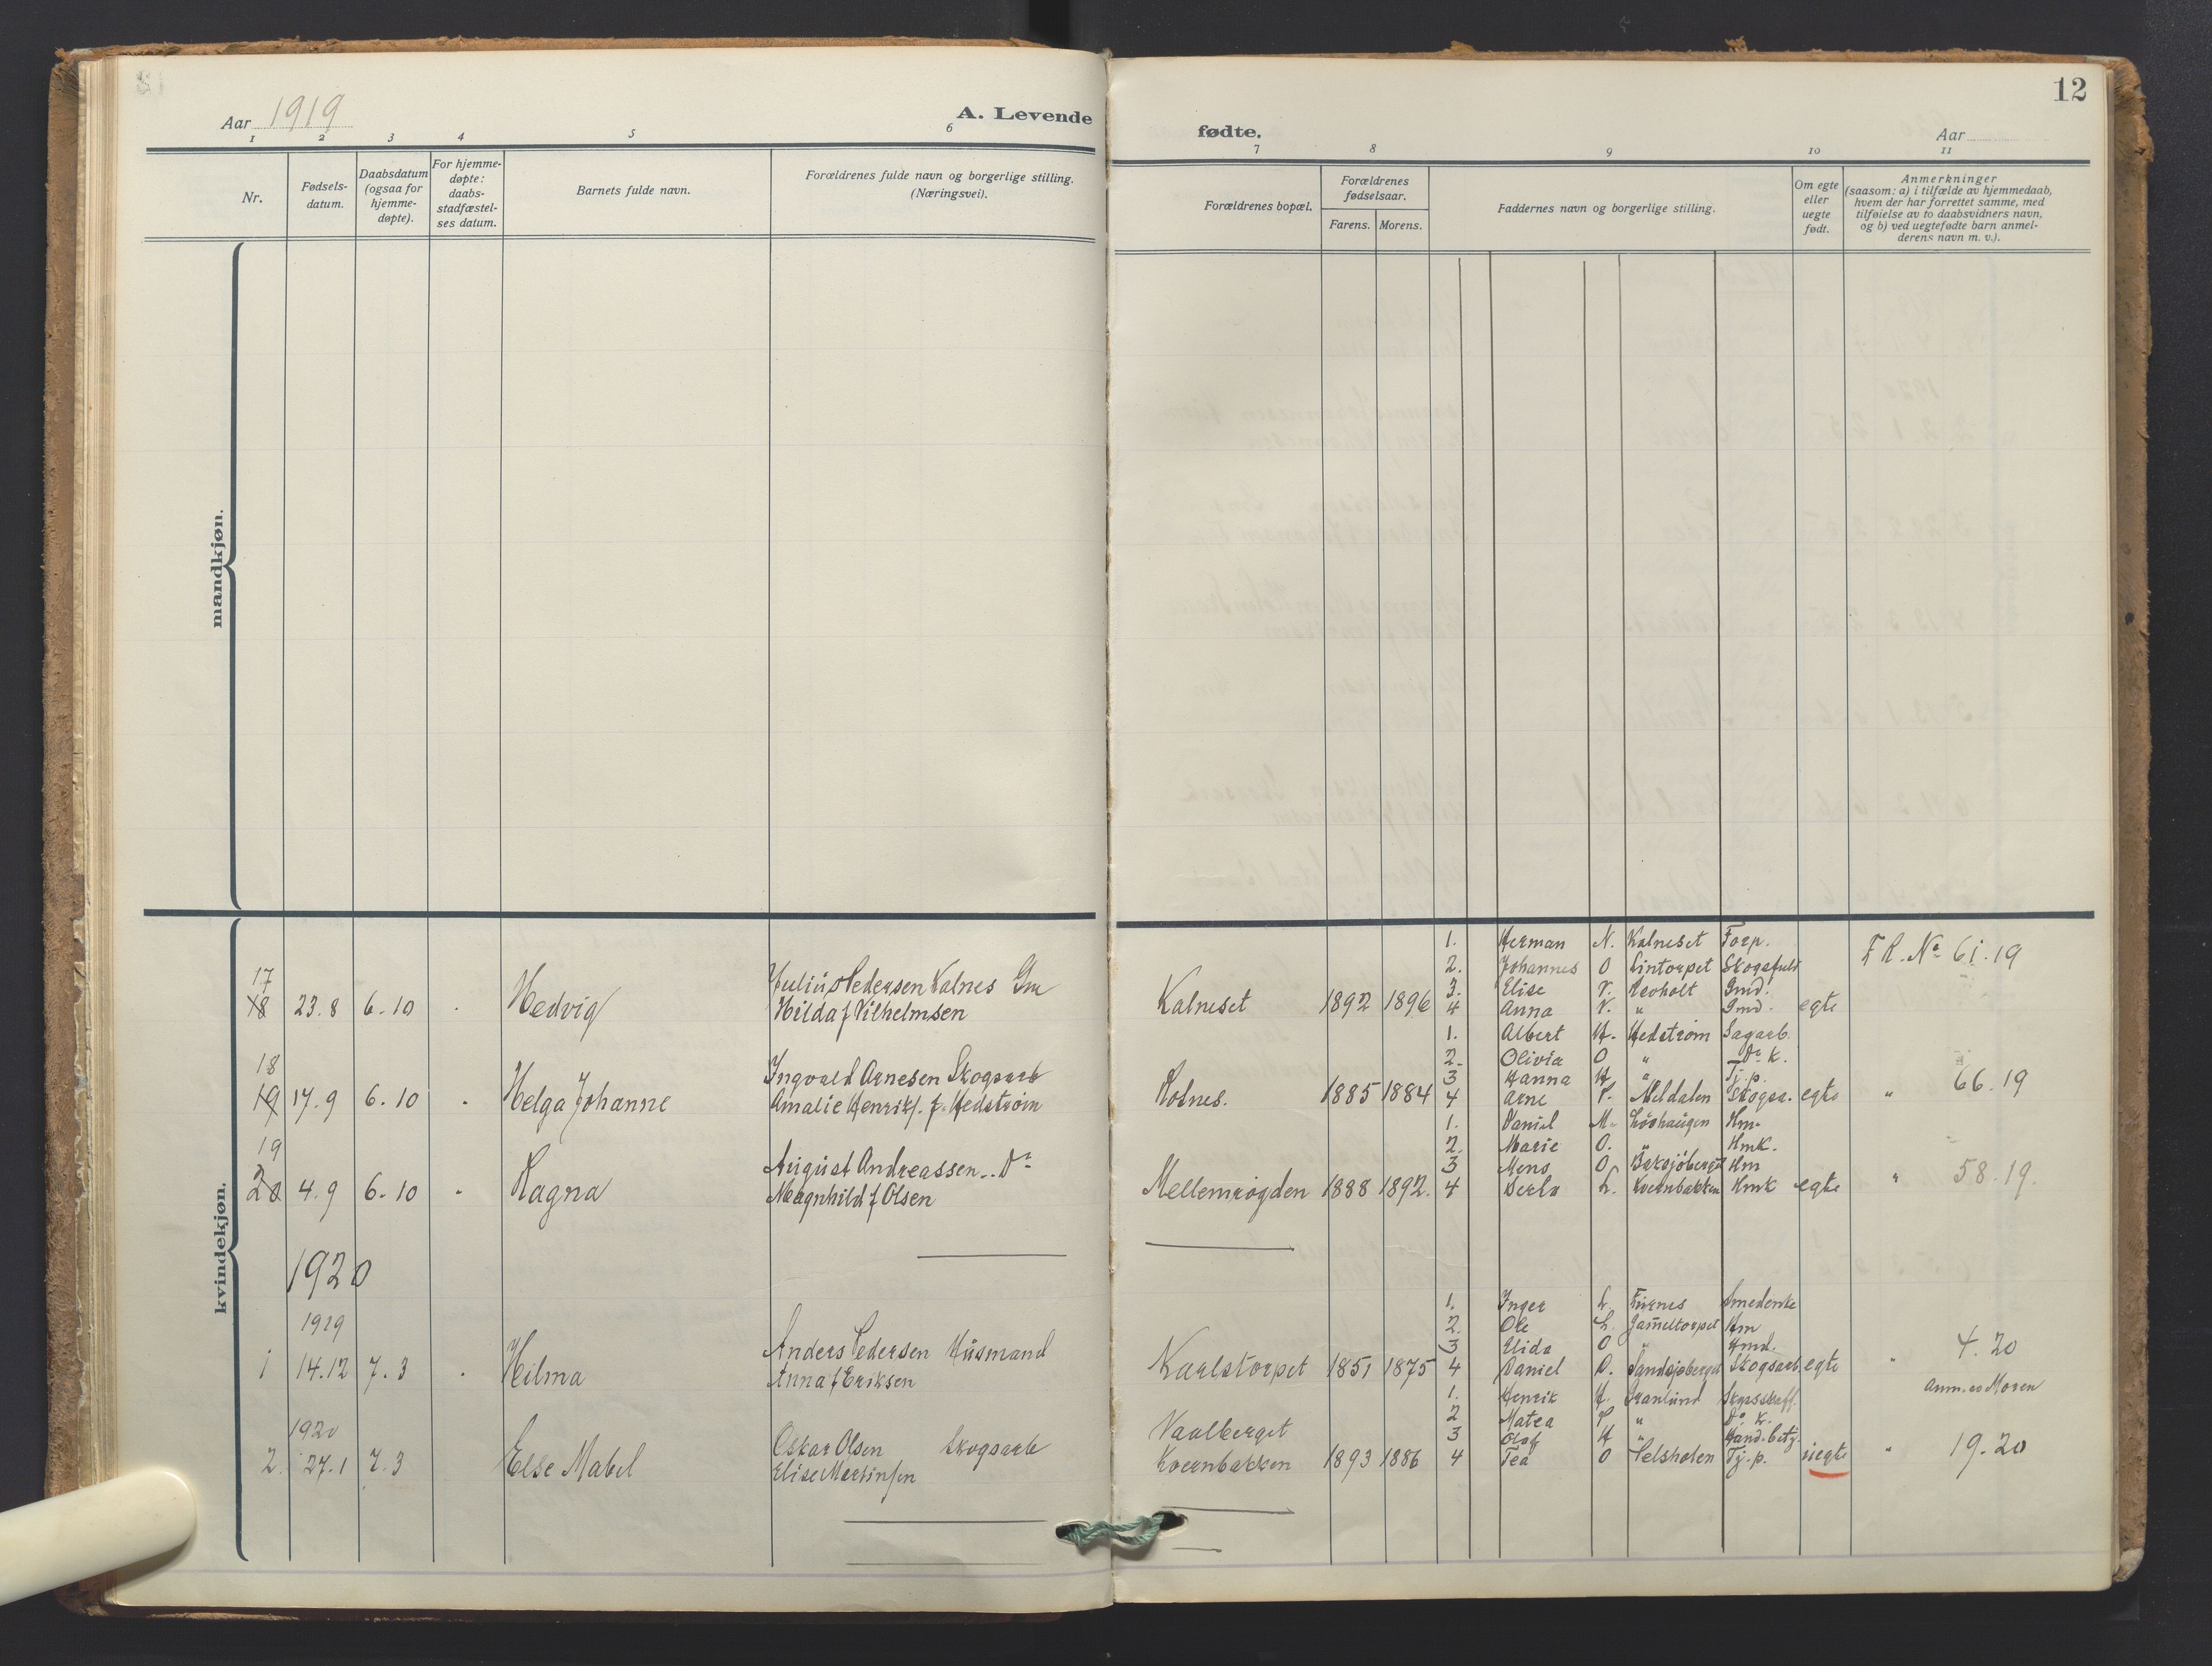 12
Aar 1919
A. Levende
fødte.
Aar
1 2 3 4 5 6 7 8 9 10 11
Nr.
Fødsels-
datum.
Daabsdatum
(ogsaa for
hjemme-
døpte).
For hjemme-
døpte:
daabs-
stadfæstel-
ses datum.
Barnets fulde navn.
Forældrenes fulde navn og borgerlige stilling.
(Næringsvei).
Forældrenes bopæl.
Forældrenes
fødselsaar.
Farens. Morens.
Faddernes navn og borgerlige stilling.
Om egte
eller
uegte
født.
Anmerkninger
(saasom: a) i tilfælde av hjemmedaab,
hvem der har forrettet samme, med
tilføielse av to daabsvidners navn,
og b) ved uegtefødte barn anmel-
derens navn m. v.).
mandkjøn.
kvindekjøn.
17
18 23.8 6.10 Hedvig
Julius Pedersen Kalnes Gm
Hilda f Vilhelmsen
Kalneset 1892 1896
1. Herman N. Kalneset Forp.
2. Johannes O Lintorpet
3. Elise V. Revholt Gmd.
4 Anna V. " Gmd.
egte
F R. No 61.19
18
19 17.9 6.10 Helga Johanne
Ingvald Arnesen Skogsarb
Amalie Henriks. f. Hedstrøm
Kolnes. 1885 1884
1. Albert H. Hedstrøm Sagarb.
2. Olivia O " Do k.
3 Hanna H " Tj. p.
4 Arne P. Meldalen Skogsa.
egte
" 66.19
19
20 4.9 6.10 Ragna
August Andreassen.. Do
Magnhild f Olsen
Mellemrøgden 1888 1892.
1. Daniel M. Løshaugen Hm.
2. Marie O. " Hmk.
3 Mons O Baksjøberget Hm
4 Berta L. Kvernbakken Hmk
egte
" 58.19.
1920
1919
1 14.12 7.3 Hilma
Anders Pedersen Husmand
Anna f Eriksen
Karlstorpet 1851 1875
1. Inger L. Furnes Smedenke
2. Ole L. Jammeltorpet Hm
3 Elida O " Hmd.
4 Daniel D. Sandsjøberget Skogsarb.
egte
" 4.20
1920
2. 27.1 7.3 Else Mabel
Oskar Olsen Skogsarb
Elise Martinsen
Vaalberget
Kvernbakken 1893 1886
1. Henrik H. Granlund
2 Matea P. " Do k.
3 Olaf H " Hand.betj.
4 Tea O Selsholen Tj. p.
uegte
Anm. av Moren
" 19.20